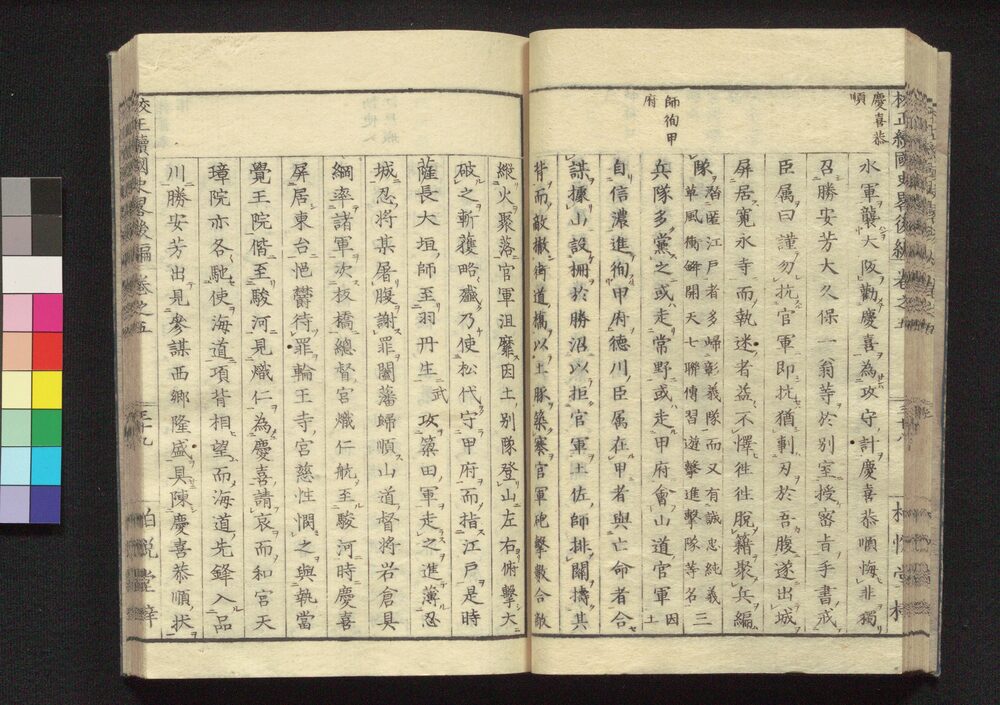 慶喜恭
順
師徇甲
府
水軍襲大阪勸慶喜為攻守計慶喜恭順悔非獨
召勝安芳大久保一翁等於別室授密旨手書戒
臣属曰謹勿抗官軍即抗猶剚刃於吾腹遂出城
屏居寛永寺而執迷者益不懌往往脫籍聚兵編
隊 當匿江戸者多歸彰義隊而又有誠忠純義
草風衝鋒開天七聯傳習遊擊進擊隊等名 三
兵隊多黨之或走常野或走甲府會山道官軍 因土
自信濃進徇甲府德川臣属在甲者與亡命者合
謀據山設柵於勝沼以拒官軍土佐師排闥擣其
背而敵撤街道橋以土豚築寨官軍砲擊數合敵
縱火聚落官軍沮靡因土別隊登山左右俯擊大
破之斬獲略殲乃使松代守甲府而指江戸是時
薩長大垣師至羽丹生 武 攻簗田軍走之進薄忍
城忍將某屠腹謝罪闔藩歸順山道督將岩倉具
綱率諸軍次板橋總督官熾仁航至駿河時慶喜
屏居東台悒鬱待罪輪王寺宮慈性憫之與執當
覺王院偕至駿河見熾仁為慶喜請哀而和宮天
璋院亦各馳使海道項背相望而海道先鋒入品
川勝安芳出見參謀西郷隆盛具陳慶喜恭順狀
校正續國史畧後編 卷之五
五十九
柏悅堂梓